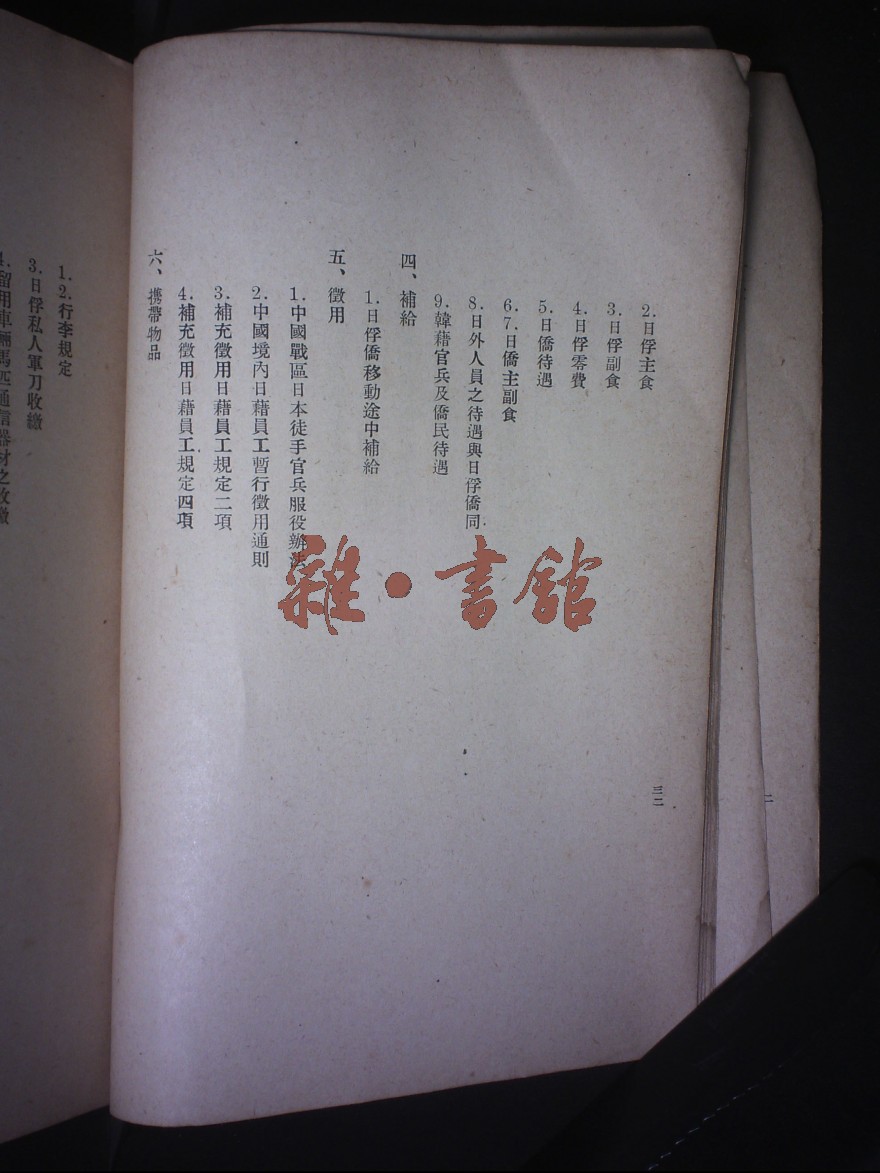 2.日俘主食
3.日俘副食
4.日俘零費
5.日僑待遇
6.7.日僑主副食
8.日外人員之待遇與日俘僑同
9.韓藉官兵及僑民待遇
四、補給
1.日俘僑移動途中補給
五、徵用
1.中國戰區日本徒手官兵服役辦法
2.中國境內日藉員工暫行徵用通則
3.補充徵用日藉員工規定二項
4.補充徵用日藉員工規定四項
六、携帶物品
三二
1.2.行李規定
3.日俘私人軍刀收繳
4.留用車輛馬匹通信器材之收繳
雜·書館